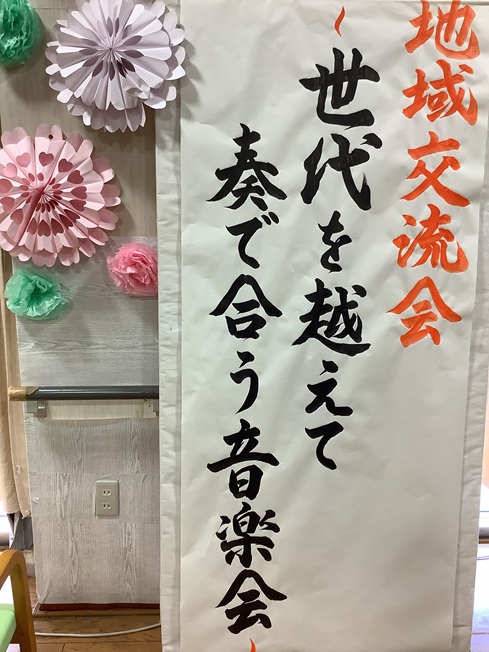 地域交流会
~世代を越えて
奏で合う音楽会~